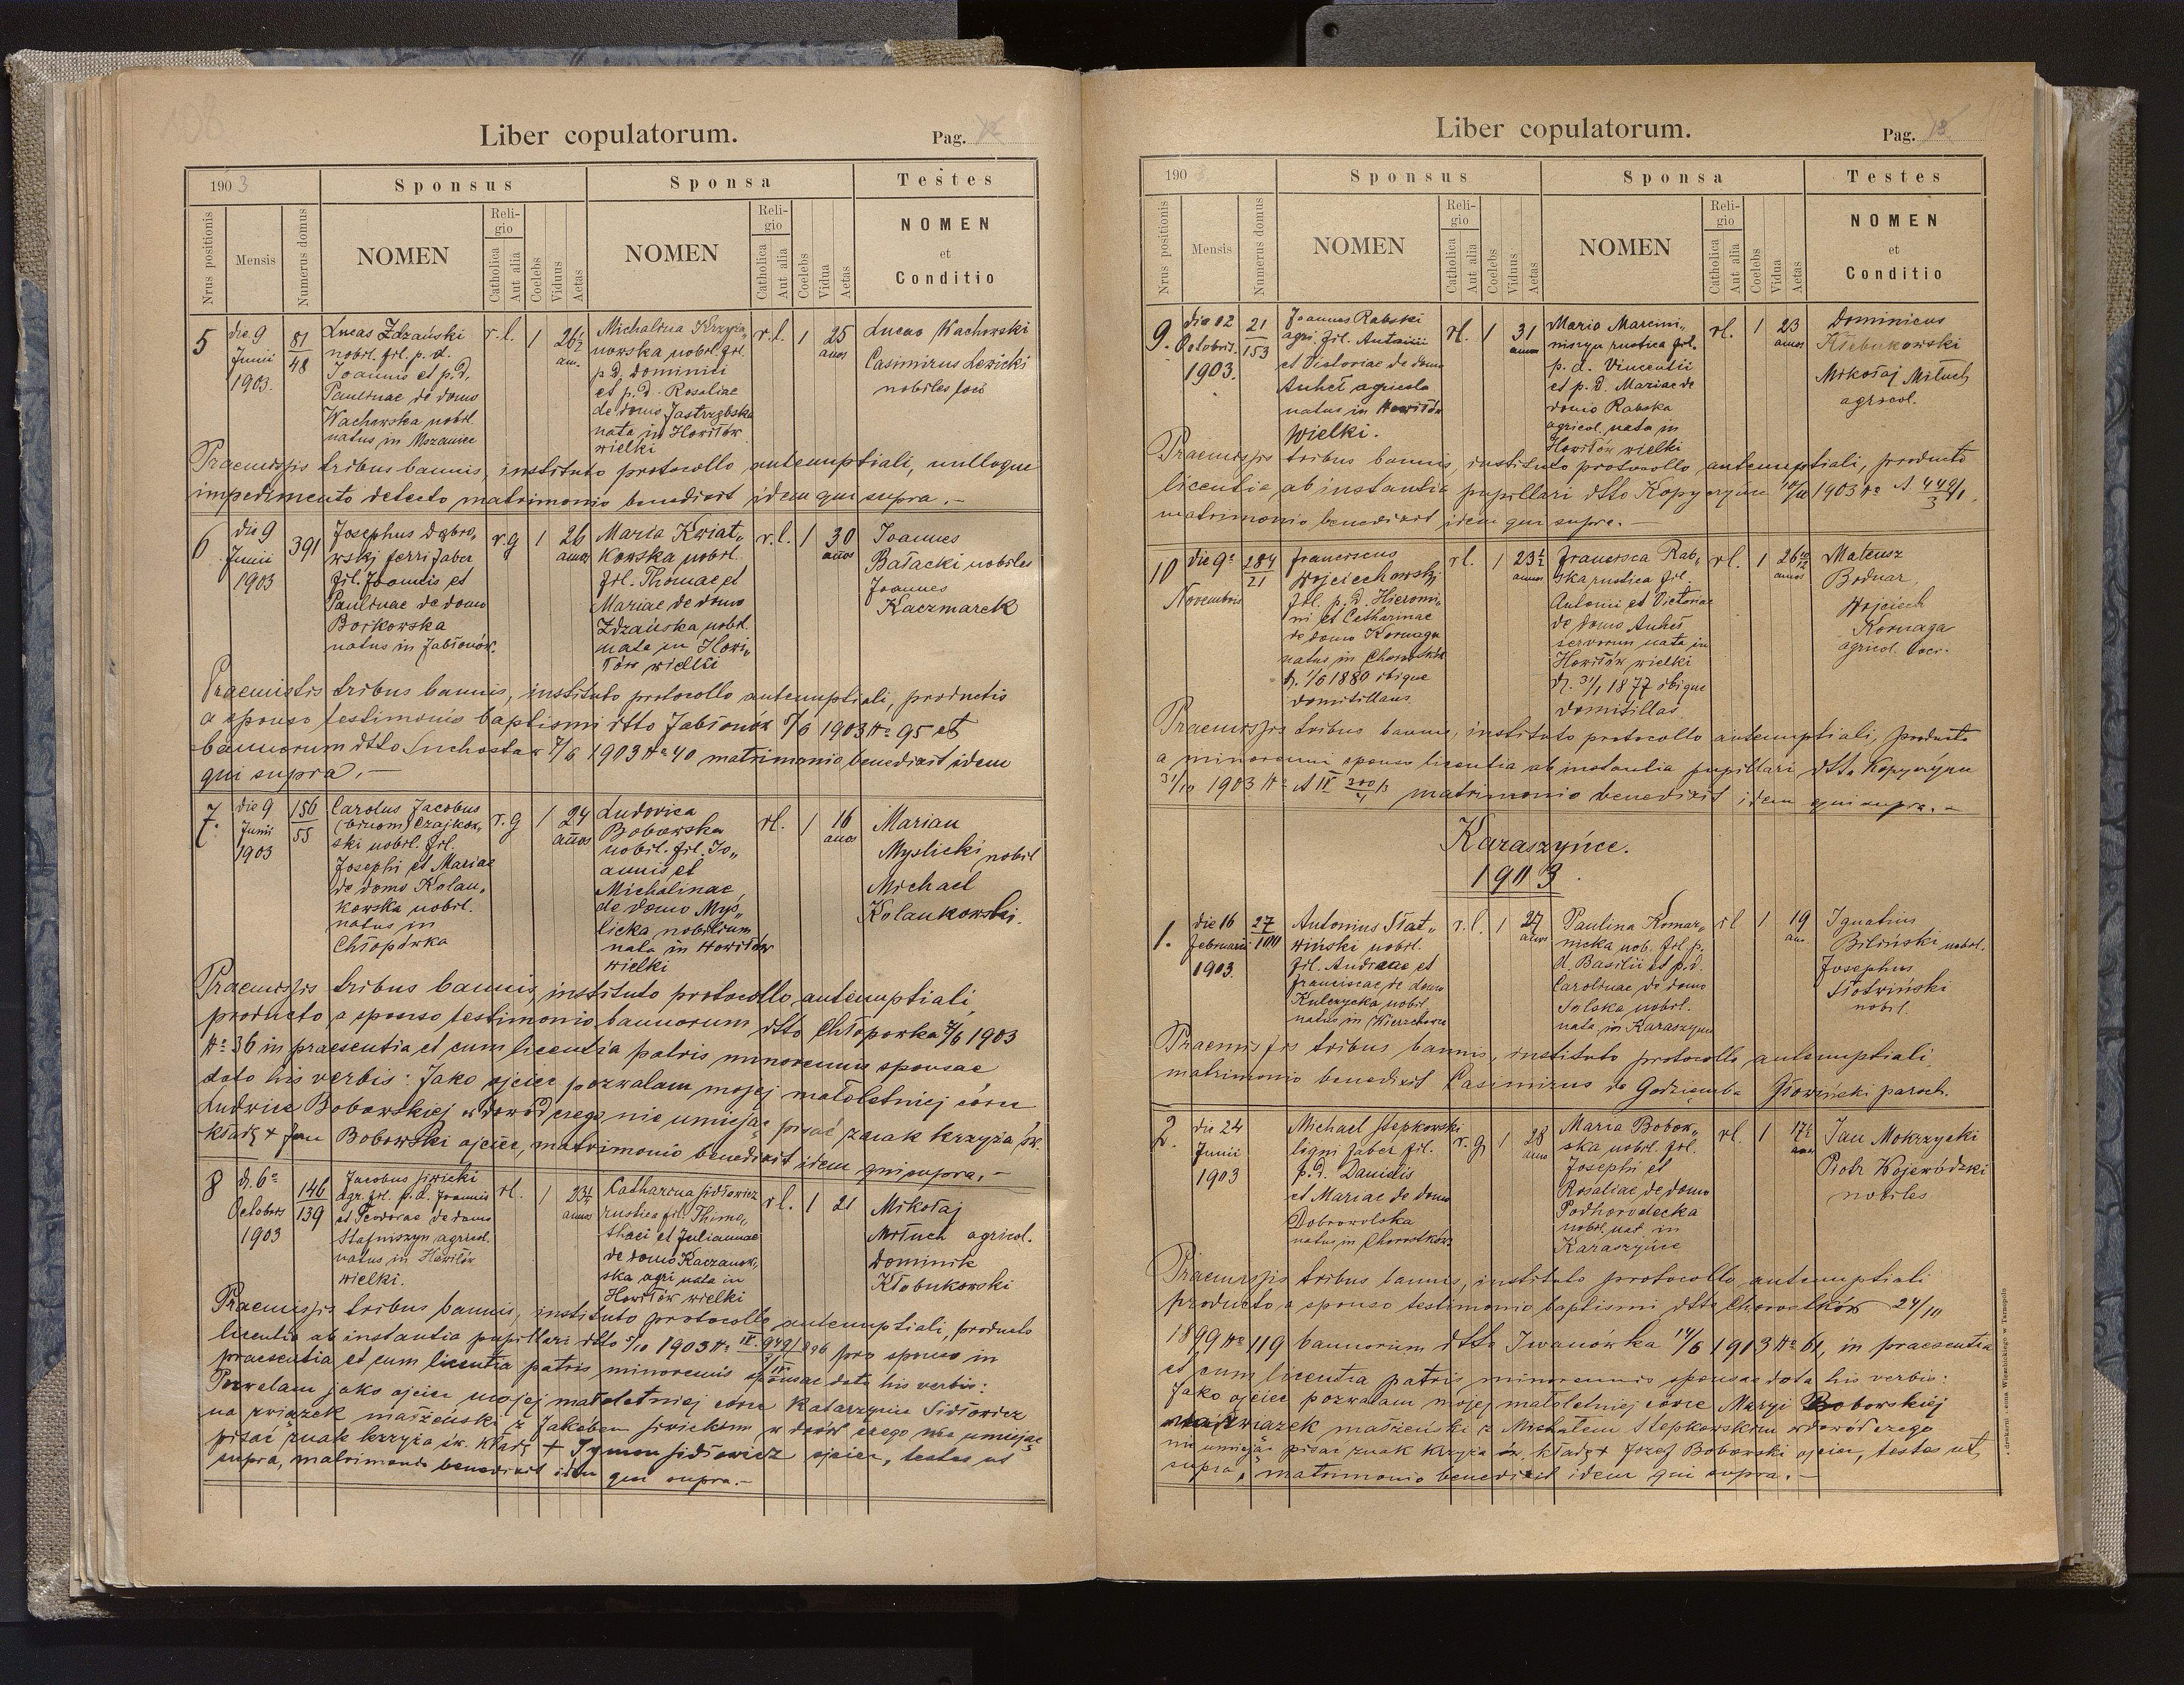 Liber copulatorum.
Pag. 12
1903
Sponsus
Sponsa
Testes
Nrus positionis
Mensis
Numerus domus
NOMEN
Religio
Catholica
Aut alia
Coelebs
Viduus
Aetas
NOMEN
Religio
Catholica
Aut alia
Coelebs
Vidua
Aetas
NOMEN
et
Conditio
5
die 9
Junii
1903.
81
48
Lucas Zdzański
nobil. fil. p. d.
Joannis et p. d.
Paulinae de domo
Wachowska nobil.
natus in Mszaniec
r. l.
1
26½
an.
Michalina Krzyża„
nowska nobil. fil.
p. d. Dominici
et p. d. Rosaliae
de domo Jastrzębska
nata in Howiłów
wielki
r. l.
1
25
annos
Lucas Wachowski
Casimirus Lewicki
nobiles loci
Praemissis tribus bannis, instituto protocollo antenuptiali, nulloque
impedimento detecto matrimonio benedixit idem qui supra.–
6
die 9
Junii
1903
391
Josephus Dąbro„
wski ferri faber
fil. Joannis et
Paulinae de domo
Borkowska
natus in Jabłonów.
r. g
1
26
annos
Maria Kwiat„
kowska nobil.
fil. Thomae et
Mariae de domo
Zdzańska nobil.
nata in Howi„
łów wielki
r. l.
1
30
annos
Joannes
Bałacki nobiles
Joannes
Kaczmarek
Praemissis tribus bannis, instituto protocollo antenuptiali, productis
a sponso testimoniis baptismi dtto Jabłonów 7/6 1903 No 95 et
bannorum dtto Suchostaw 7/6 1903 No 40 matrimonio benedixit idem
qui supra.–
7.
die 9
Junii
1903
156
55
Carolus Jacobus
(binom) Czajkow„
ski nobil. fil.
Josephi et Mariae
de domo Kolan„
kowska nobil.
natus in
Chłopówka
r. g
1
24
annos
Ludovica
Bobowska
nobil. fil. Jo„
annis et
Michalinae
de domo Myś„
licka nobilium
nata in Howiłów
wielki
rl.
1
16
annos
Marian
Myslicki nobil
Michael
Kolankowski.
Praemissis tribus bannis, instituto protocollo antenuptiali,
producto a sponso testimonio bannorum dtto Chłopówka 7/6 1903
No 36 in praesentia et cum licentia patris minorennis sponsae
dato his verbis: Jako ojciec pozwalam mojej małoletniej córce
Ludwice Bobowskiej w dowód czego nie umiejąc pisać znak krzyża św.
kładę + Jan Bobowski ojciec, matrimonio benedixit idem qui supra.–
8
d. 6o
Octobris
1903
146
139
Jacobus Siwicki
agr. fil. p. d. Joannis
et Teodorae de domo
Stafniszyn agricol.
natus in Howiłów
wielki.
rl.
1
23½
annos
Catharina Sidłowicz
rustica fil. Thimo„
thaei et Juliannae
de domo Kaczanow„
ska agri nata in
Howiłów wielki
r. l.
1
21
Mikołaj
Mituch agricol.
Dominik
Kłobukowski
Praemissis tribus bannis, instituto protocollo antenuptiali, producto
licentia ab instantia pupillari dtto 5/10 1903 No pro sponso in
praesentia et cum licentia patris minorennis sponsae data his verbis:
Pozwalam jako ojciec mojej małoletniej córce Katarzynie Sidłowicz
na związek małżeński z Jakóbem Siwickim w dowód czego nie umiejąc
pisać znak krzyża św. kładę + Tymon Sidłowicz ojciec, testes ut
supra, matrimonio benedixit idem qui supra.–
Liber copulatorum.
Pag. 13
1903
Sponsus
Sponsa
Testes
Nrus positionis
Mensis
Numerus domus
NOMEN
Religio
Catholica
Aut alia
Coelebs
Viduus
Aetas
NOMEN
Religio
Catholica
Aut alia
Coelebs
Vidua
Aetas
NOMEN
et
Conditio
9.
die 12
Octobris.
1903.
21
153
Joannes Rabski
agri. fil. Antonii
et Victoriae de domo
Anheł agricola
natus in Howiłów
wielki.
rl.
1
31
annos
Maria Marcini„
rustica fil.
p. d. Vincentii
et p. d. Mariae de
domo Rabska
agricol. nata in
Howiłów wielki
rl.
1
23
annos
Dominicus
Kłobukowski
Mikołaj Mituch
agricol.
Praemissis tribus bannis, instituto protocollo antenuptiali, producto
licentia ab instantia pupillari dtto Kopyczyńce 1903 No A 449/1
matrimonio benedixit idem qui supra.–
10
die 9o
Novembris
284
21
Franciscus
Wojciechowski
fil. p. d. Hieromi„
ni et Catharinae
de domo Kornaga
natus in Chorostków
d. 1/6 1880 ibique
domicilians
rl.
1
23½
annos
Francisca Rab„
ska rustica fil.
Antonii et Victoriae
de domo Anheł
servorum nata in
Howiłów wielki
d. 31/1 1877 ibique
domicilias
rl.
1
26 10/12
annos
Mateusz
Bodnar
Wojciech
Kornaga
agricol. loci.
Praemissis tribus bannis, instituto protocollo antenuptiali, producta
a minorenni sponso licentia ab instantia pupillari dtto Kopyczyńce
31/10 1903 No A IV matrimonio benedixit idem qui supra.–
Karaszyńce.
1903.
1.
die 16
Februarii
1903
27
100
Antonius Słat„
wiński nobil.
fil. Andreae et
Franciscae de domo
Kulczycka nobil
natus in
r. l.
1
27
annos
Paulina Komar„
nicka nob. fil. p.
d. Basilii et p. d.
Carolinae de domo
Solska nobil.
nata in Karaszyńce
rl
1
19
an.
Ignatius
Biliński nobil.
Josephus
Słotwiński
nobil.
Praemissis tribus bannis, instituto protocollo antenuptiali
matrimonio benedixit Casimirus de Godziemba Głowiński paroch.
2.
die 24
Junii
1903
Michael Stepkowski
ligni faber fil.
p. d. Danielis
et Mariae de domo
Dobrowolska
natus in Chorostków
r. g
1
28
anno
Maria Bobow„
ska nobil. fil.
Josephi et
Rosaliae de domo
Podhorodecka
nobil. nat. in
Karaszyńce
rl.
1
17½
ann
Jan Mokrzycki
Piotr Wojewódzki
nobiles
Praemissis tribus bannis, instituto protocollo antenuptiali
producto a sponso testimonio baptismi dtto Chorostków 24/10
1899 No 119 bannorum dtto Iwanówka 14/6 1903 No 61, in praesentia
et cum licentia patris minorennis sponsae data his verbis:
Jako ojciec pozwalam mojej małoletniej córce Maryi Bobowskiej
na związek małżeński z Michałem Stepkowskim w dowód czego
nie umiejąc pisać znak krzyża św. kładę + Józef Bobowski ojciec, testes ut
supra, matrimonio benedixit idem qui supra.–